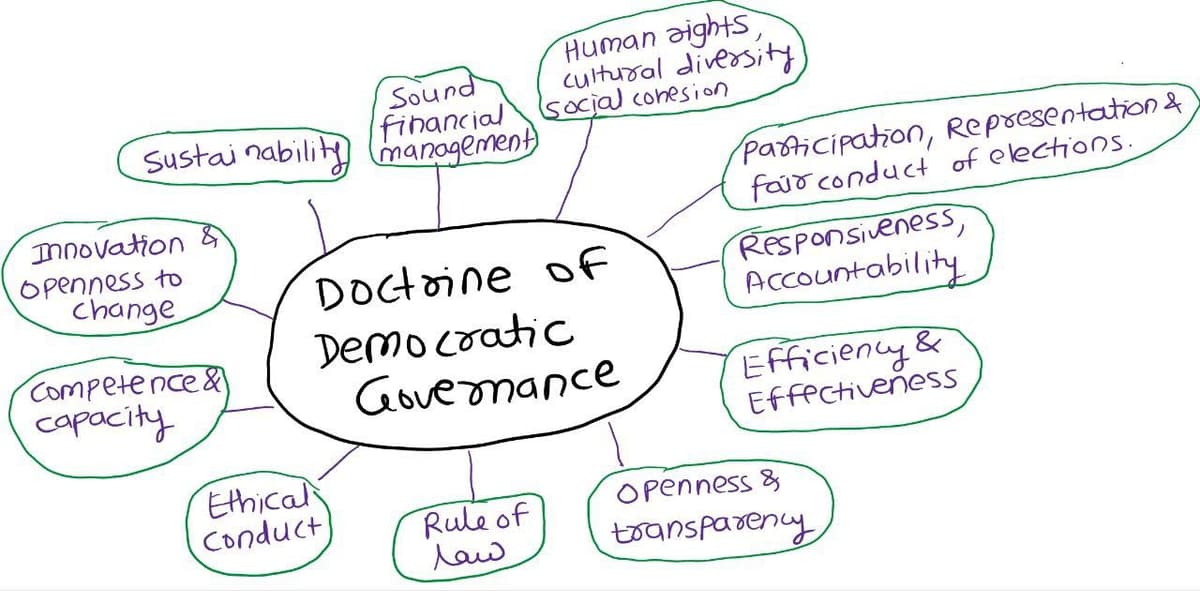 Human rights,
cultural diversity
social cohesion
Sound
financial
management
Sustainability
Participation, Representation &
fair conduct of elections.
Innovation &
openness to
change
Responsiveness,
Accountability
Doctrine of
Democratic
Governance
Efficiency &
Effectiveness
Competence &
capacity
Ethical
Conduct
Rule of
law
Openness &
transparency